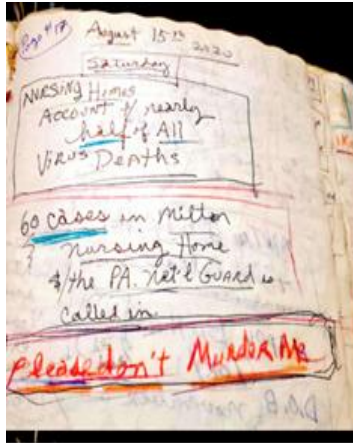 Page #17
August 15th
2020
Saturday
NURSING Homes
ACCOUNT of nearly
half of All
VIRUS Deaths
60 cases in Milton
Nursing Home
& the PA. Nat'l GUARD is
called in
Please don't Murder Me